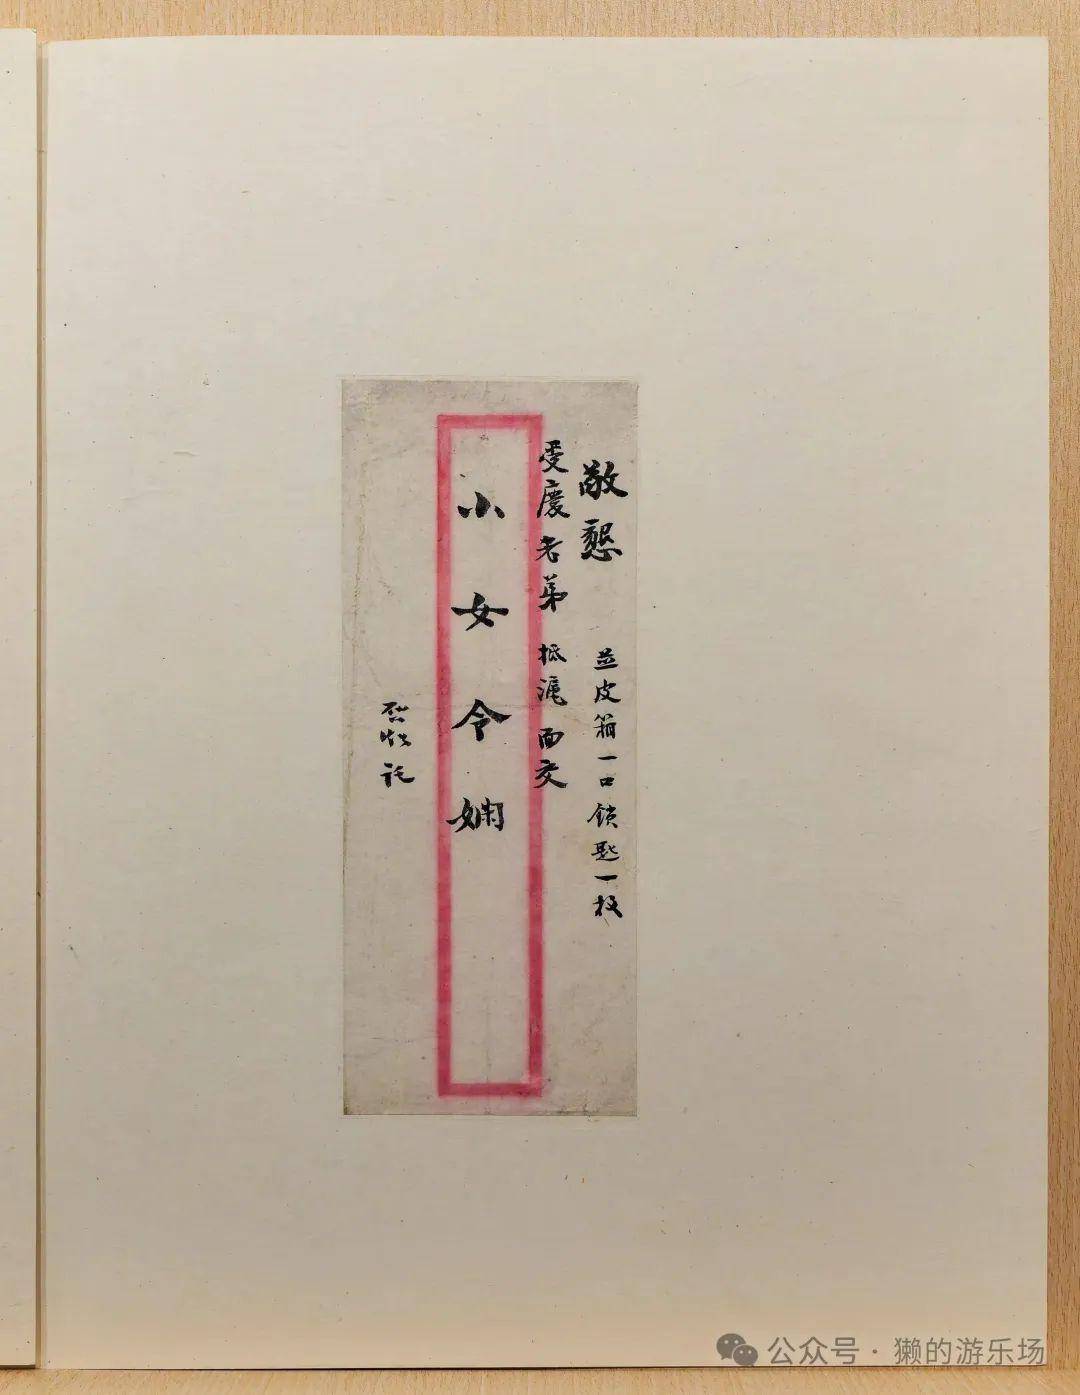 敬懇
並皮箱一口鎖匙一枚
受慶老弟 抵滬 面交
小女令嫻
託
公众号 · 獭的游乐场